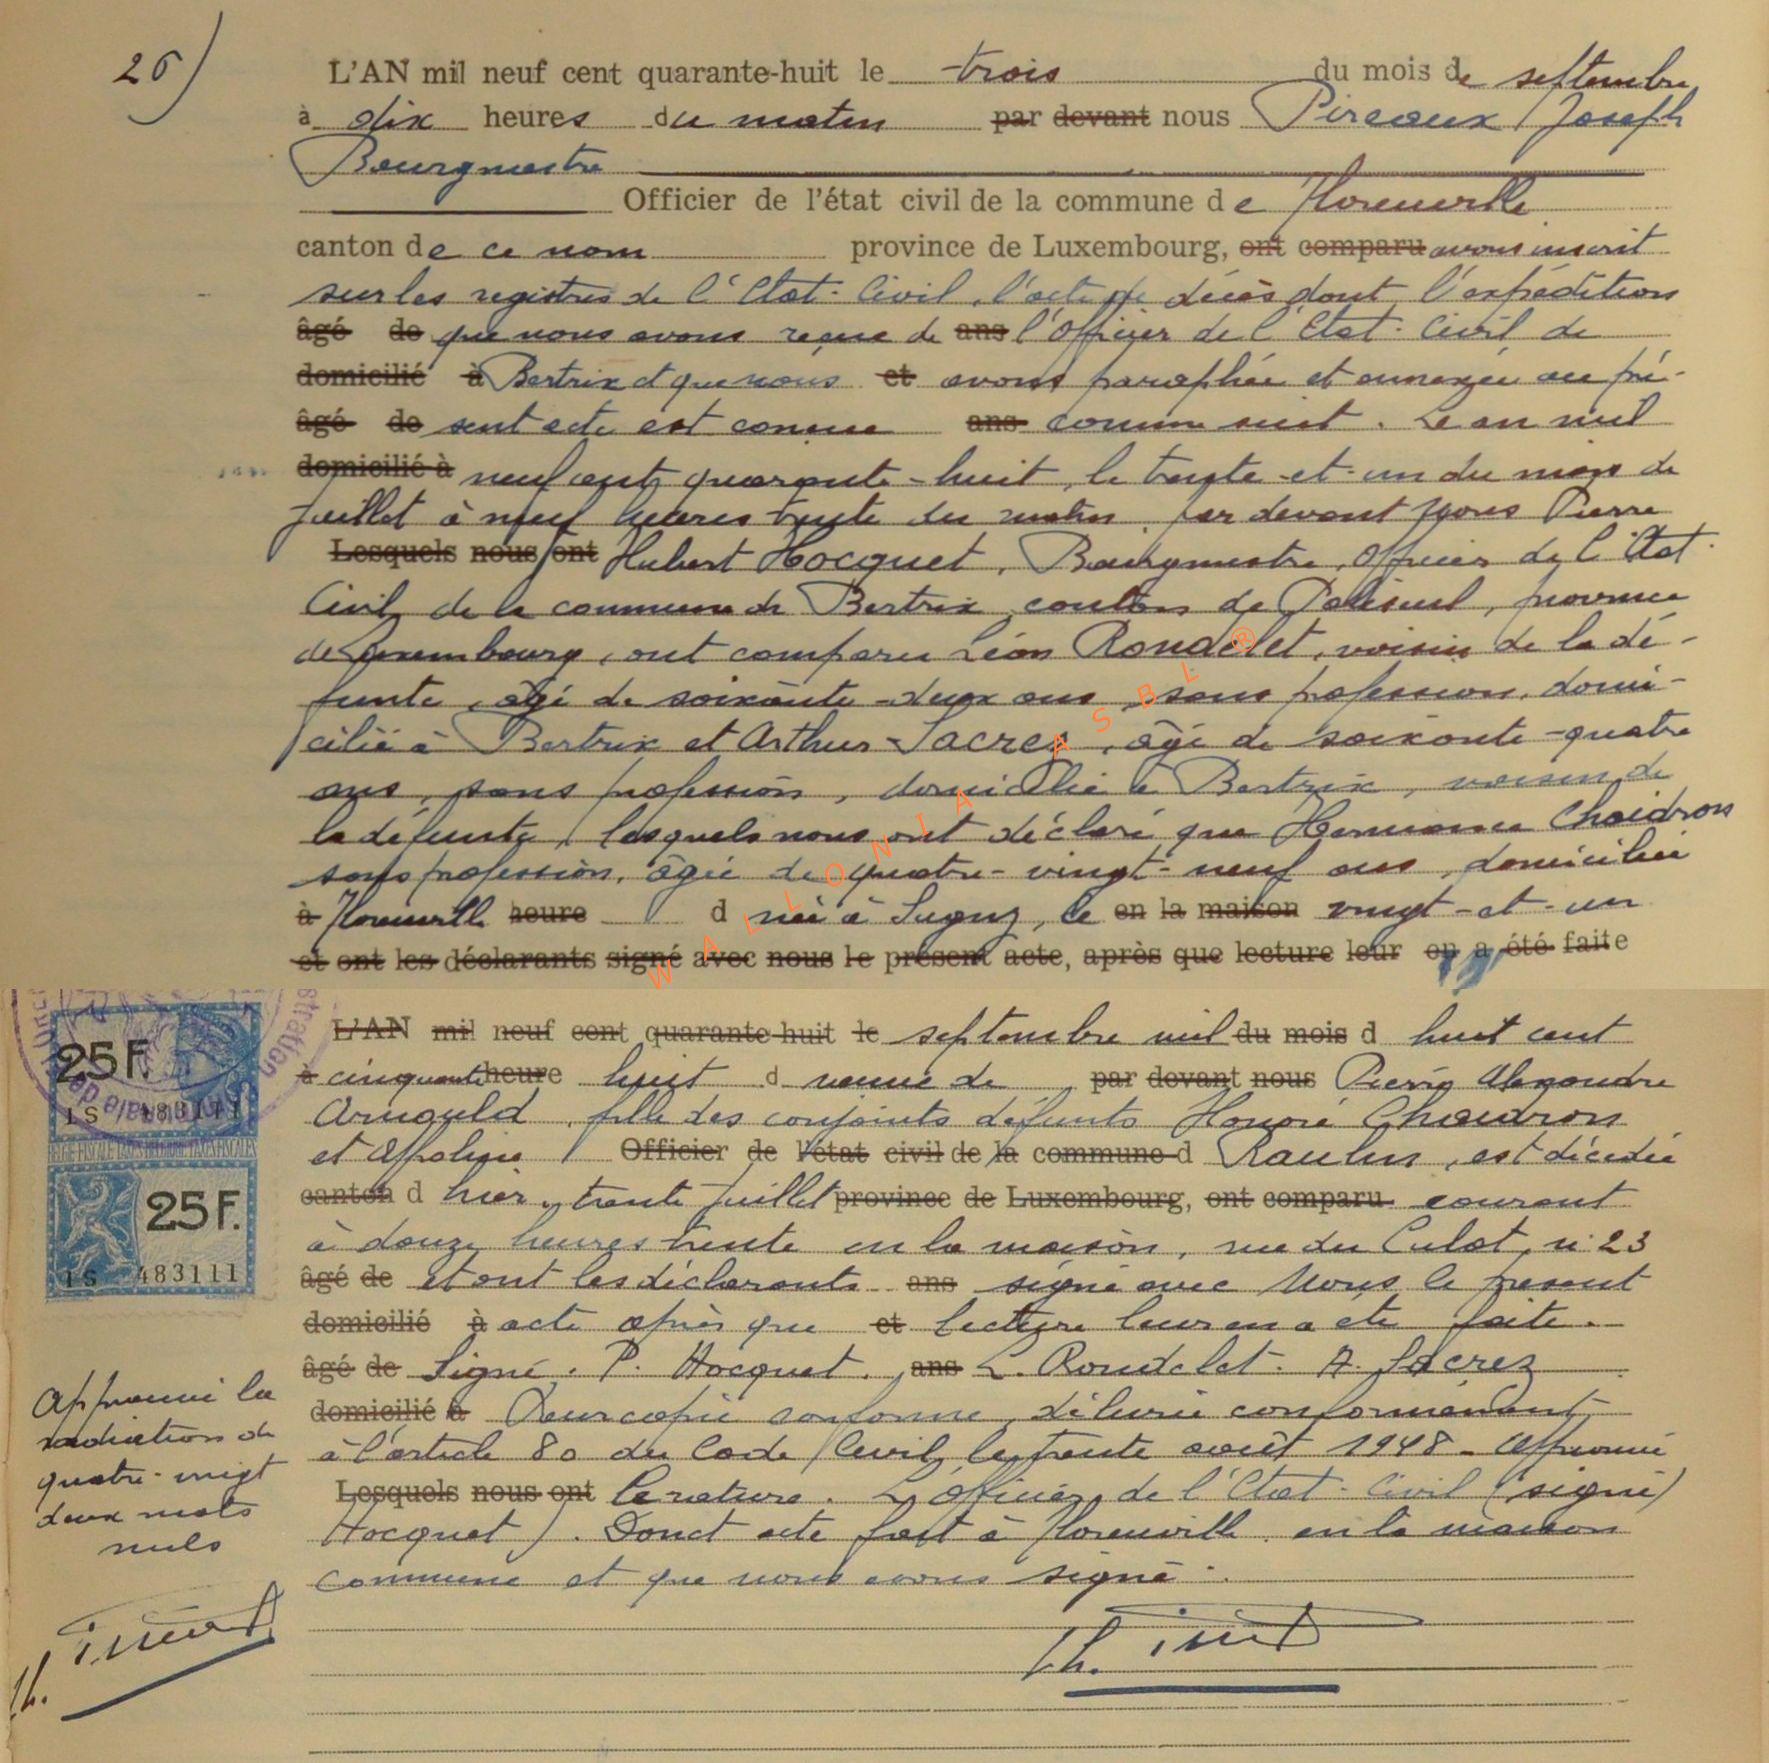 26)
L'AN mil neuf cent quarante-huit le trois du mois de septembre
à dix heures du matin par devant nous Pireaux Joseph
Bourgmestre
Officier de l'état civil de la commune de Florenville
canton de ce nom province de Luxembourg, ont comparu avons inscrit
sur les registres de l'Etat-Civil, l'acte de décès dont l'expédition
âgé de que nous avons reçue de ans l'Officier de l'Etat-Civil de
domicilié à Bertrix et que nous et avons paraphée et annexée au pré-
âgé de sent acte est conçue ans comme suit. Le an mil
domicilié à neuf cent quarante-huit, le trente-et-un du mois de
Juillet à neuf heures trente du matin, par devant Nous Pierre
Lesquels nous ont Hubert Hocquet, Bourgmestre, Officier de l'Etat-
Civil de la commune de Bertrix, canton de Paliseul, province
de Luxembourg, ont comparu Léon Rondelet, voisin de la dé-
funte, âgé de soixante-deux ans, sans profession, domi-
cilié à Bertrix et Arthur Sacrez, âgé de soixante-quatre
ans, sans profession, domicilié à Bertrix, voisin de
la défunte, lesquels nous ont déclaré que Hermance Chaidron
sans profession, âgée de quatre-vingt-neuf ans, domiciliée
à Florenville heure d née à Sugny, le en la maison vingt-et-un
et ont les déclarants signé avec nous le présent acte, après que lecture leur en a été faite
WALLONIA ASBL ®
L'AN mil neuf cent quarante-huit le septembre mil du mois d huit cent
à cinquante heure huit d veuve de par devant nous Pierre Alexandre
Arnould, fille des conjoints défunts Honoré Chaidron
et Apoline Officier de l'état civil de la commune d Raulin, est décédée
canton d hier, trente Juillet province de Luxembourg, ont comparu courant
à douze heures trente en la maison, rue du Culot, n° 23
âgé de et ont les déclarants ans signé avec Nous le présent
domicilié à acte après que et lecture leur en a été faite.
âgé de Signé. P. Hocquet. ans L. Rondelet. A. Sacrez
domicilié à Pour copie conforme, délivrée conformément
à l'article 80 du Code Civil, le trente août 1948 - Approuvé
Lesquels nous ont la rature. L'Officier de l'Etat-Civil (signé)
Hocquet). Dont acte fait à Florenville en la maison
commune et que nous avons signé.
25 F.
1S 483111
25 F.
1S 483111
Approuvé la
radiation de
quatre-vingt
deux mots
nuls